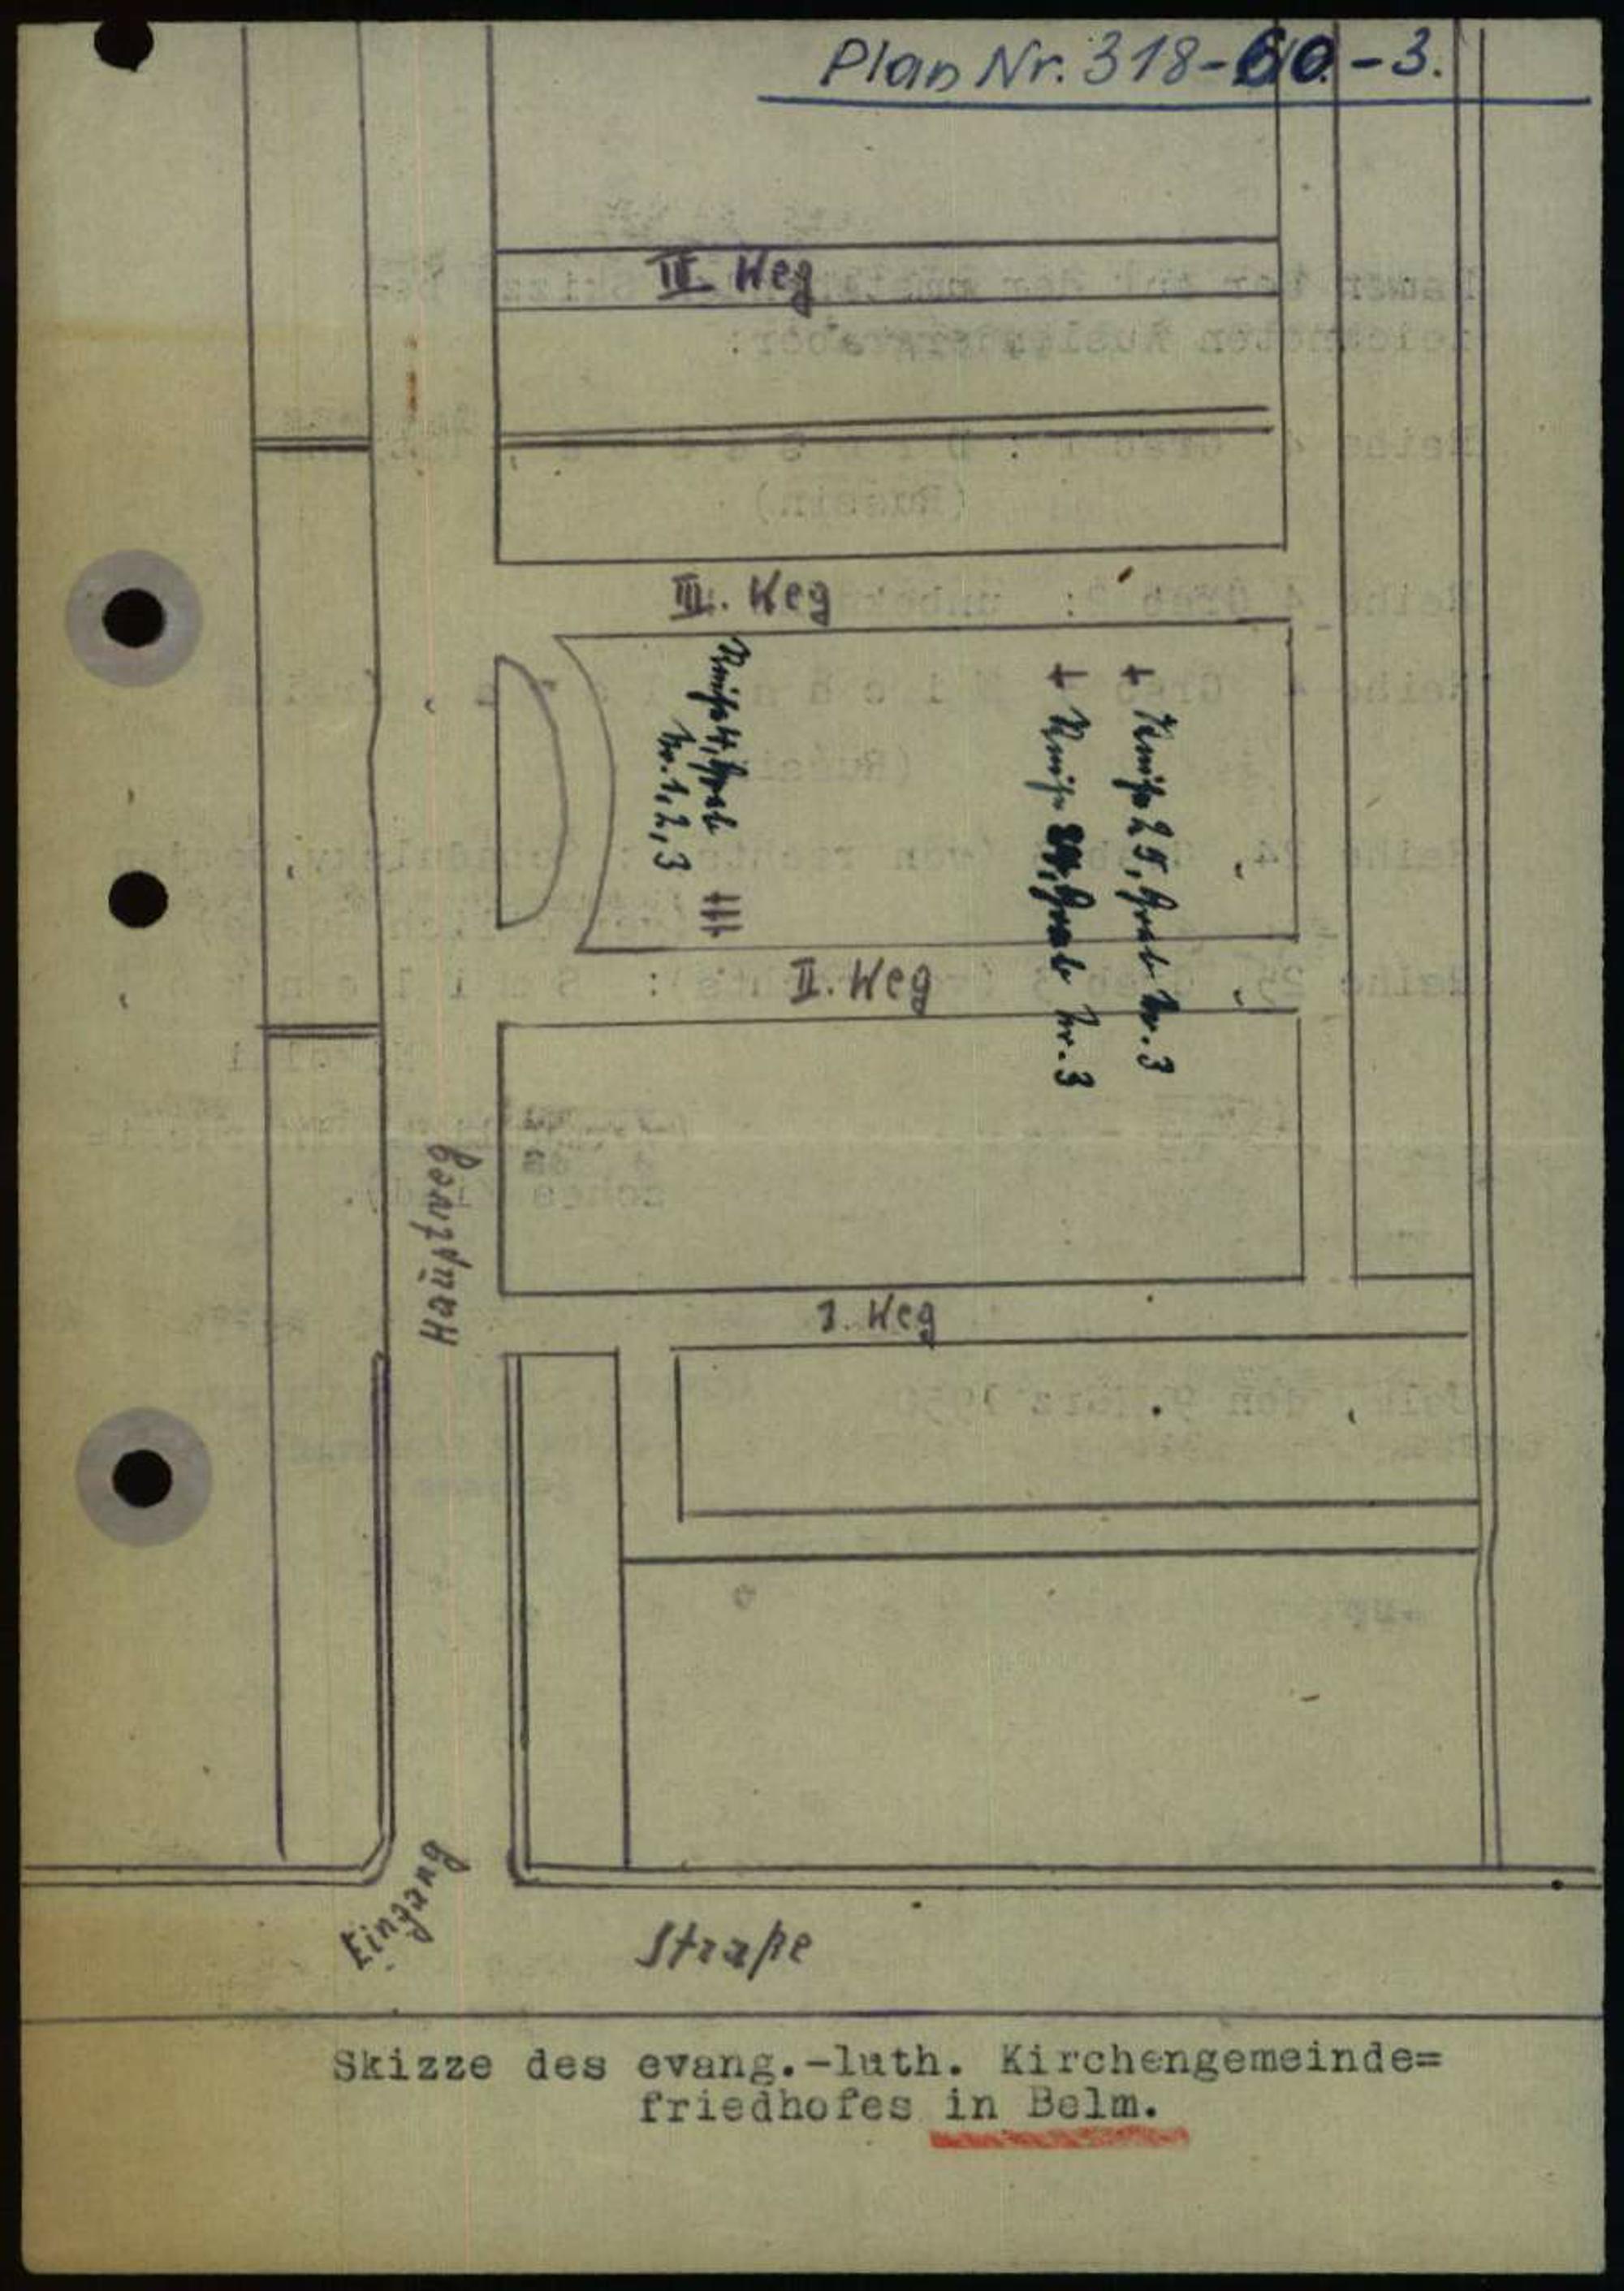 Plan Nr. 318-60.-3.
IV. Weg
III. Weg
Reihe 4, Grab
Nr. 1, 2, 3
Reihe 25, Grab Nr. 3
Reihe 24, Grab Nr. 3
II. Weg
Hauptweg
I. Weg
Eingang
Straße
Skizze des evang.-luth. Kirchengemeinde=
friedhofes in Belm.